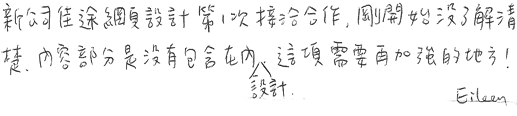 新公司佳途網頁設計 第1次接洽合作, 剛開始沒了解清
楚. 內容部分是沒有包含在內設計, 這項需要再加強的地方!
Eileen